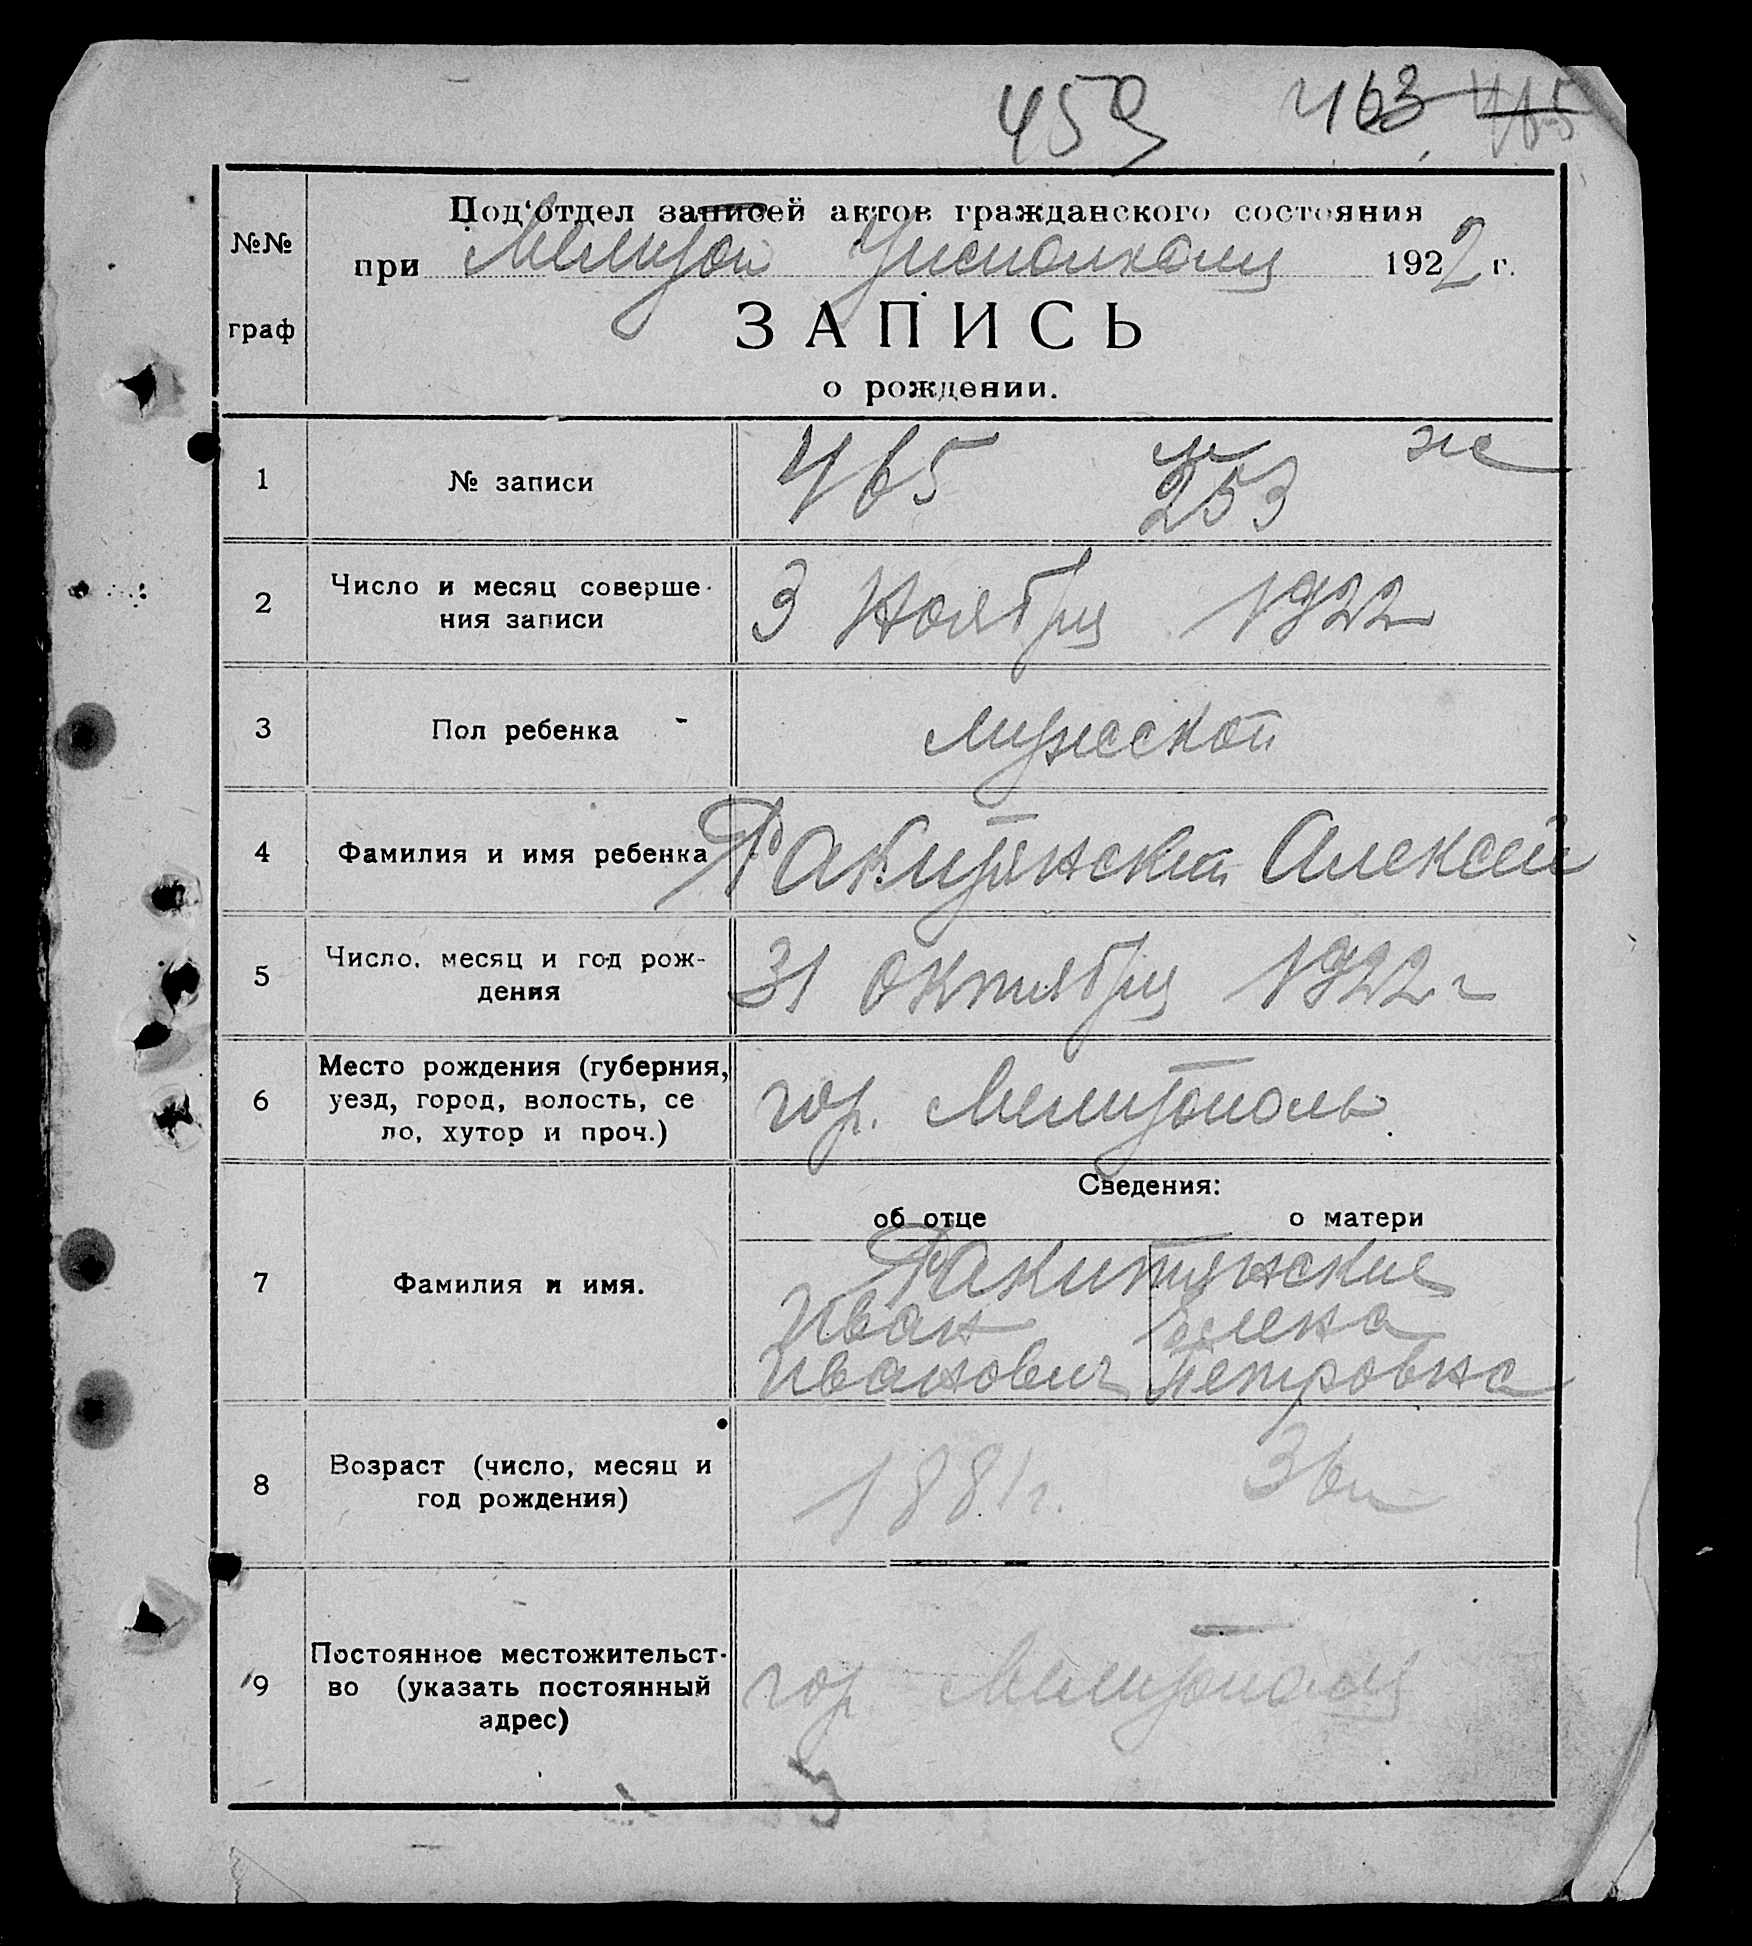 459 463 465
Под'отдел записей актов гражданского состояния
№№
при Мелитоп Уисполкому 1922 г.
граф
ЗАПИСЬ
о рождении.
1 № записи 465 м ж
253
2 Число и месяц соверше-
ния записи
3 Ноября 1922
3 Пол ребенка мужской
4 Фамилия и имя ребенка Ракитянский Алексей
5 Число, месяц и год рож-
дения
31 Октября 1922 г
6 Место рождения (губерния,
уезд, город, волость, се
ло, хутор и проч.)
гор. Мелитополь
Сведения:
об отце о матери
7 Фамилия и имя.
Ракитянские
Иван Елена
Иванович Петровна
8 Возраст (число, месяц и
год рождения)
1881 г. 36 л
9 Постоянное местожительст-
во (указать постоянный
адрес)
гор Мелитополь